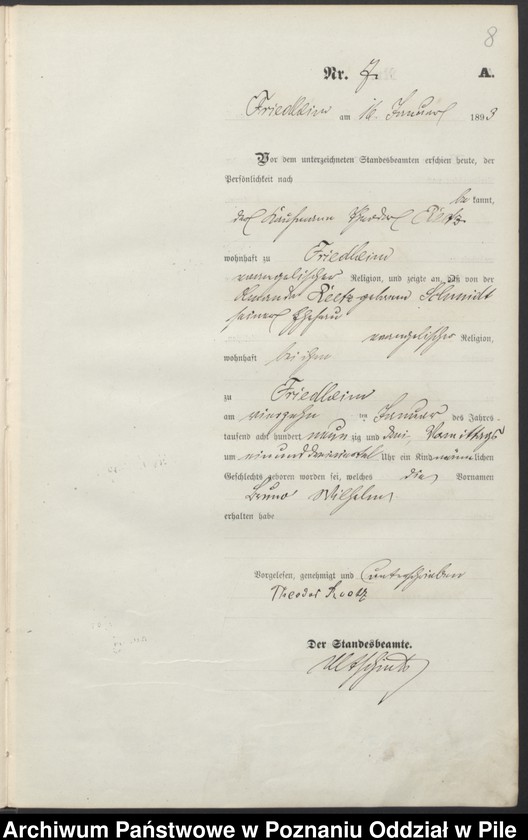 8
Nr. 7. A.
Friedheim am 16. Januar 1893
Vor dem unterzeichneten Standesbeamten erschien heute, der
Persönlichkeit nach
bekannt,
der Kaufmann Theodor
wohnhaft zu Friedheim
evangelischer Religion, und zeigte an, daß von der
Amanda geborene Schmidt
seiner Ehefrau
evangelischer Religion,
wohnhaft bei ihm
zu Friedheim
am vierzehn ten Januar des Jahres
tausend acht hundert neun zig und drei, Vormittags
um ein und dreiviertel Uhr ein Kind männlichen
Geschlechts geboren worden sei, welches die Vornamen
Bruno Wilhelm
erhalten habe
Vorgelesen, genehmigt und unterschrieben
Theodor
Der Standesbeamte.
Archiwum Państwowe w Poznaniu Oddział w Pile